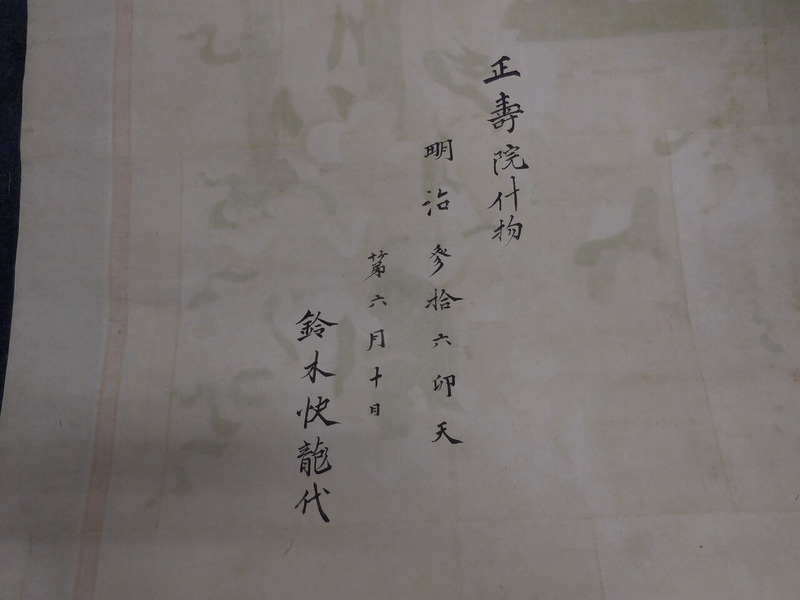 正壽院什物
明治参拾六卯天
第六月十日
鈴木快龍代